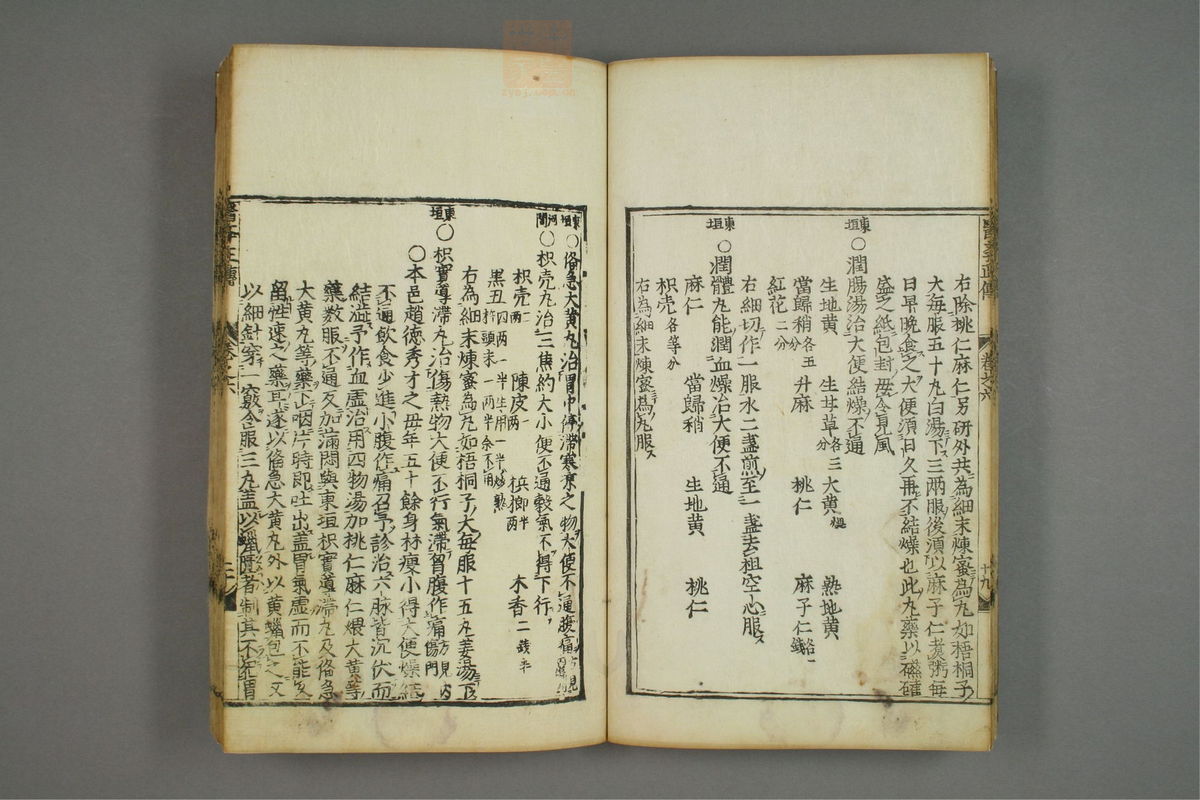 右除桃仁麻仁另研外共為細末煉蜜為丸如梧桐子
大每服五十九白湯下三兩服後須以麻子仁煮粥每
日早晚食之大便須日久再不結燥也此丸藥以磁確
盛之紙包封毋令見風
東垣〇潤腸湯治大便結燥不通
生地黄 生甘草各三分 大黄煨 熟地黄
當歸稍各五分 升麻 桃仁 麻子仁各一錢
紅花二分
右細切作一服水二盞煎至一盞去柤空心服
東垣〇潤體丸能潤血燥治大便不通
麻仁 當歸稍 生地黄 桃仁
枳壳各等分
右為細末煉蜜為丸服
醫學正傳 卷之六 十九
東垣〇俻急大黄丸治胃中停滯寒凉之物大便不通腹痛方見
河間〇枳壳丸治三焦約大小便不通穀氣不得下行
枳壳二兩 陳皮一兩 梹榔半兩 木香二錢半
黒丑四兩一半生用一半炒熟杵頭末一兩半余不用
右為細末煉蜜為丸如梧桐子大每服十五丸姜湯下
東垣〇枳實導滯丸治傷熱物大便不行氣滯胷腹作痛方見内傷門
〇本邑趙德秀才之母年五十餘身材瘦小得大便燥結
不通飲食少進小腹作痛召予診治六脉皆沉伏而
結澁予作血虚治用四物湯加桃仁麻仁煨大黄等
藥数服不通反加滿悶與東垣枳實導滯丸及俻急
大黄丸等藥下咽片時即吐出盖胃氣虚而不能久
留性速之藥耳遂以俻急大黄丸外以黄蠟包之又
以細針穿一竅令服三丸盖以蠟匱者制其不犯胃
醫學正傳 卷之六 二十